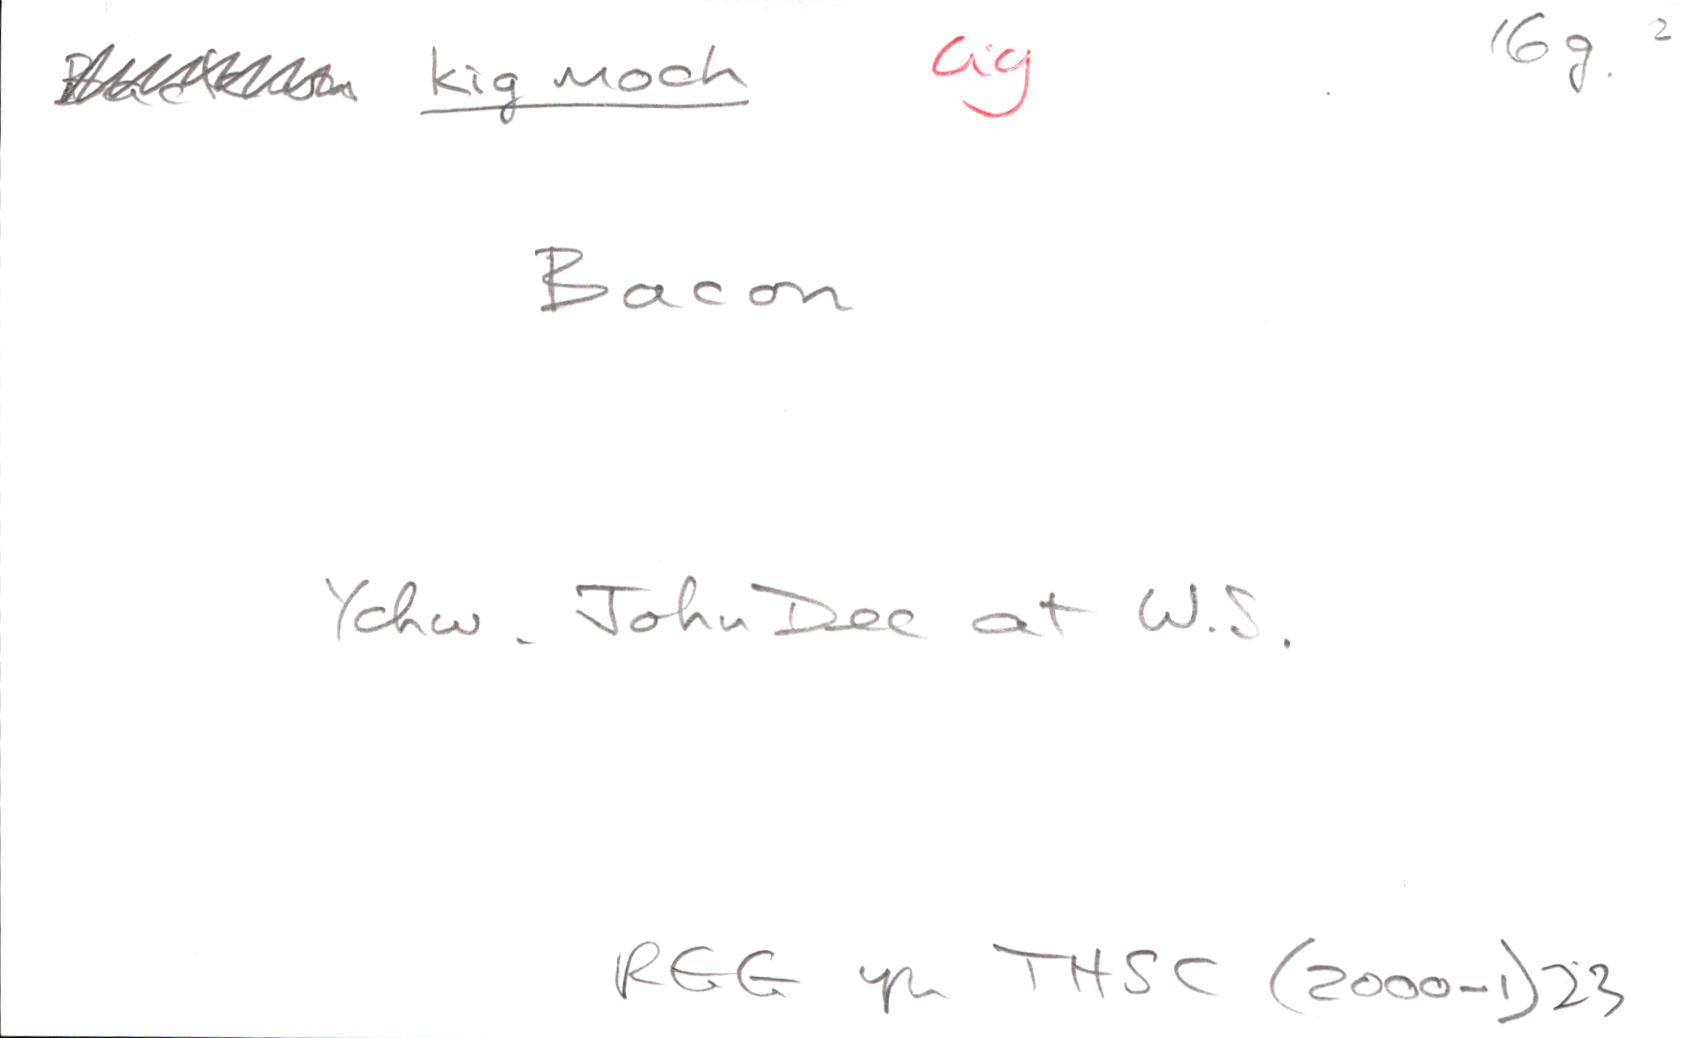 kig moch cig 16g. 2
Bacon
Ychw. John Dee at W.S.
RGG yn THSC (2000-1) 23